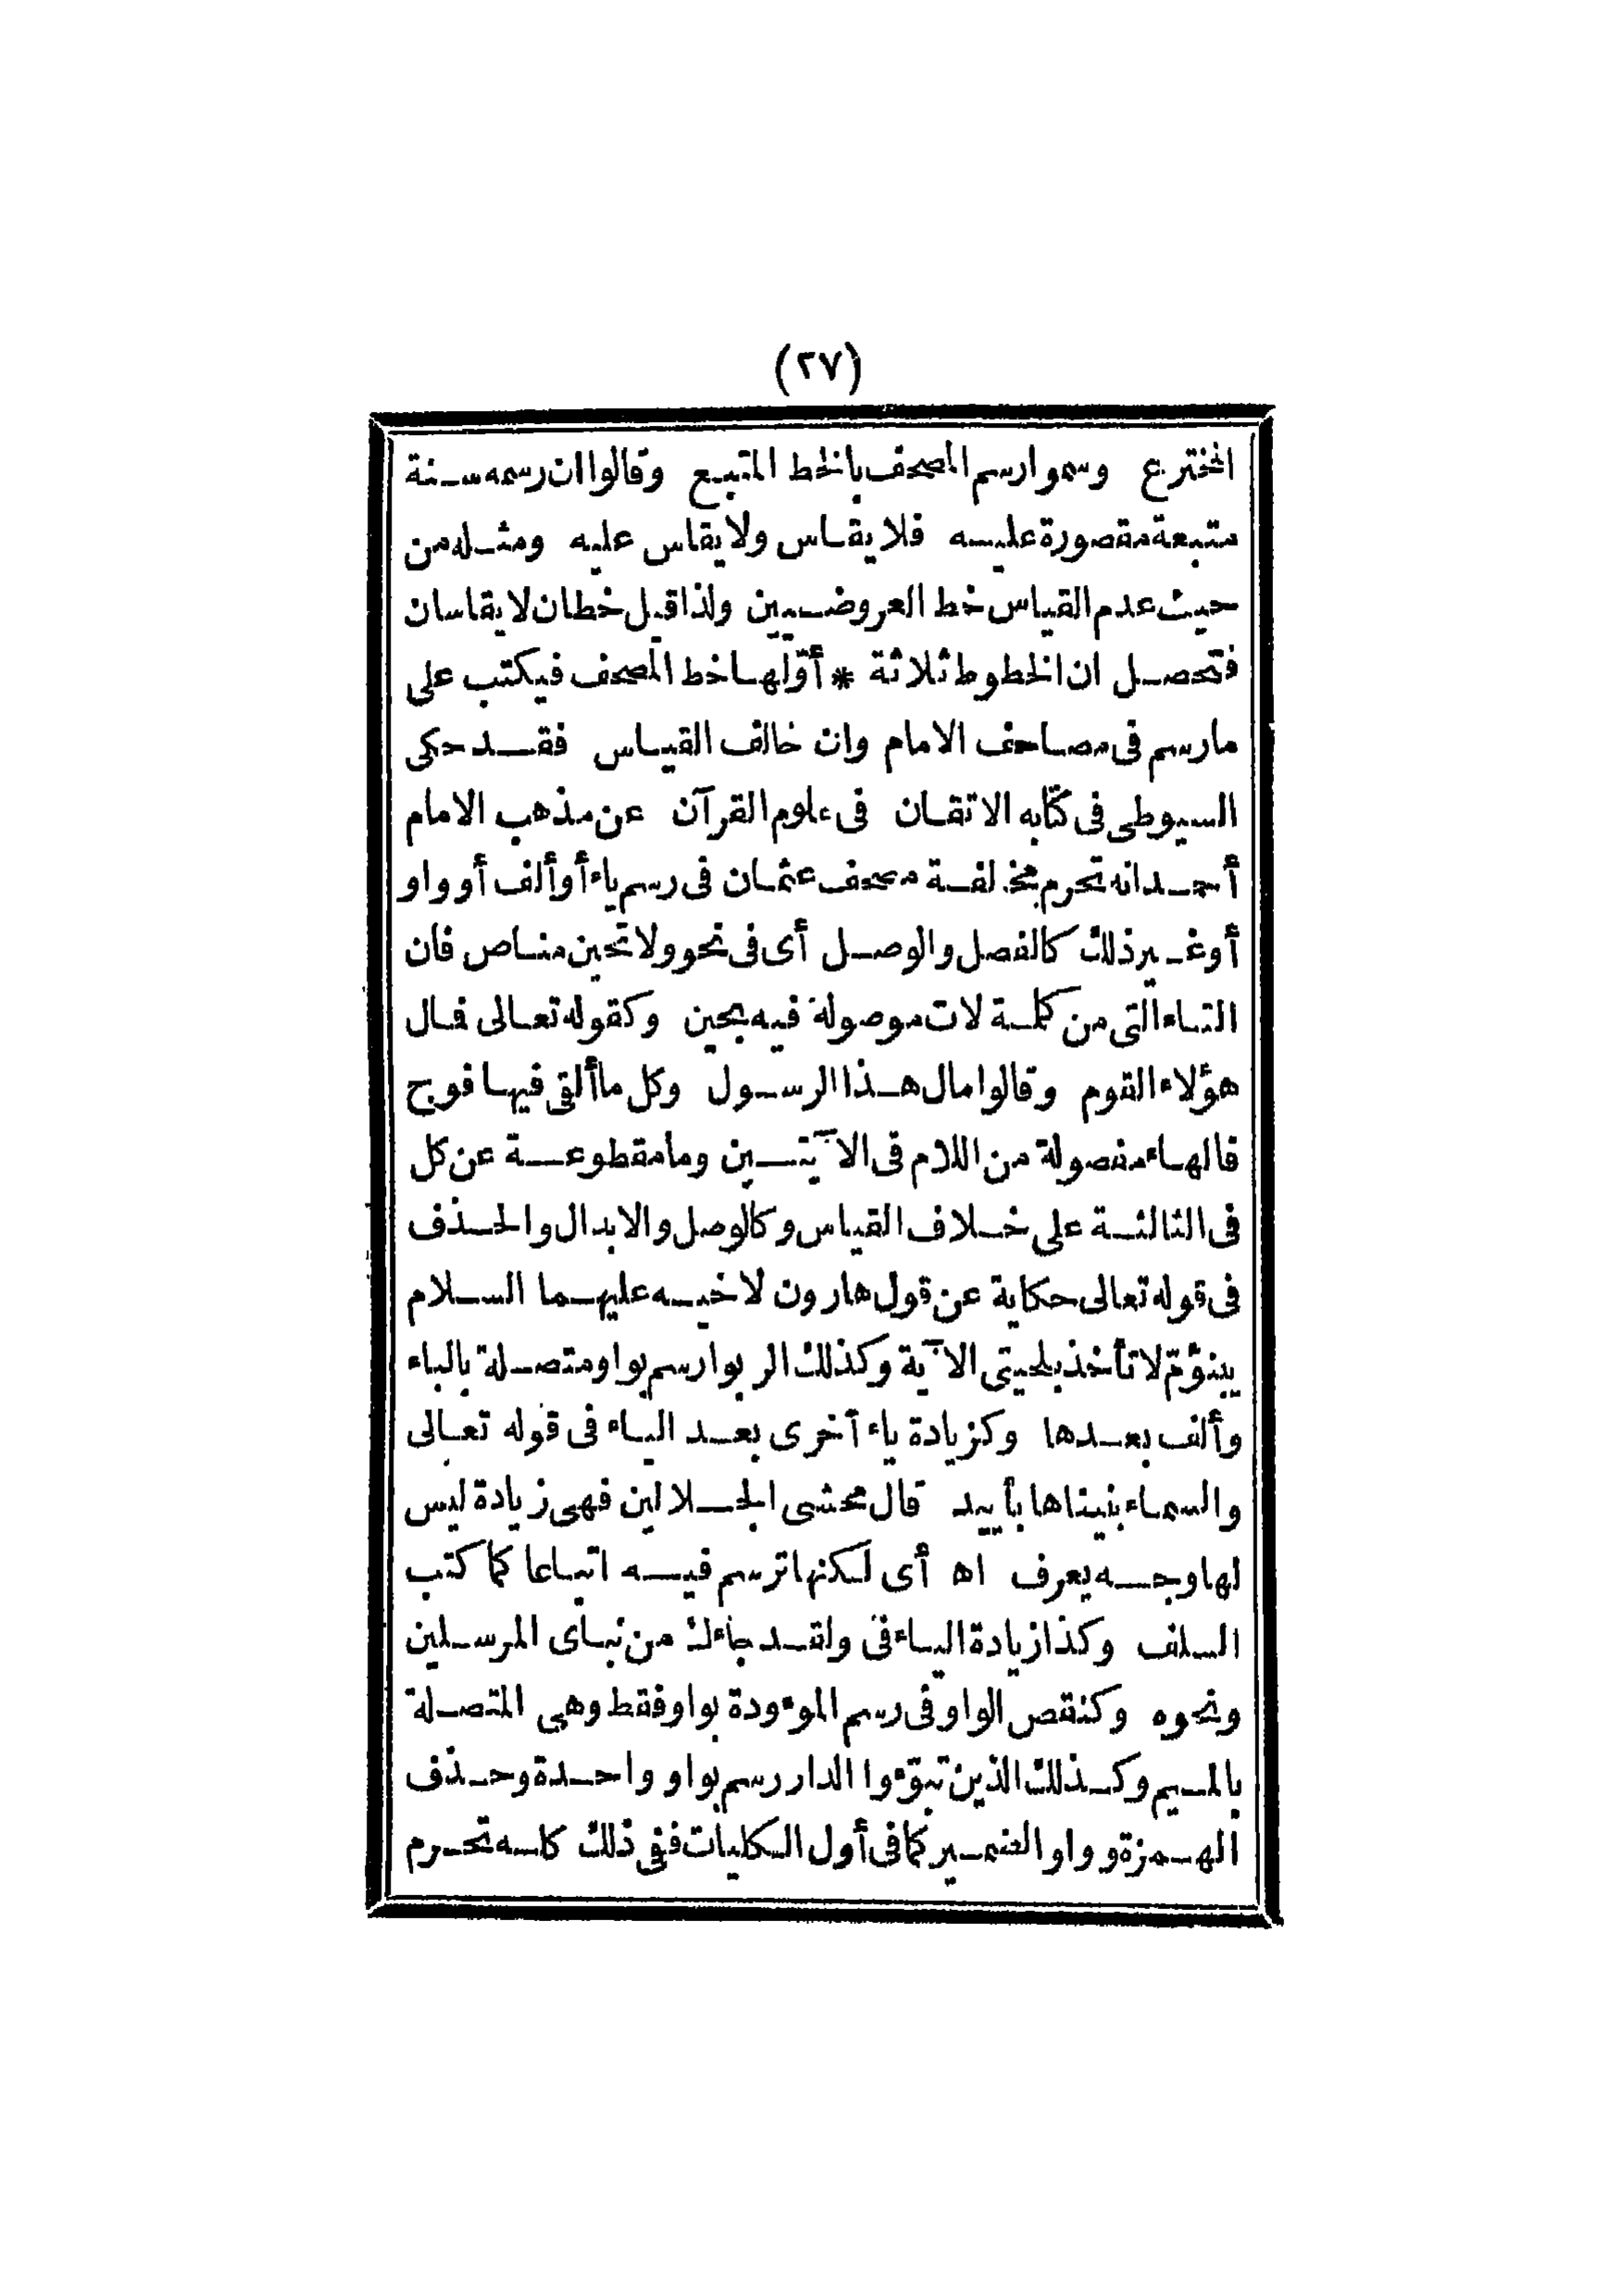 (٢٧)
المخترع وسموا رسم المصحف بالخط المتبع وقالوا ان رسمه سنة
متبعة مقصورة عليه فلا يقاس ولا يقاس عليه ومثله من
حيث عدم القياس خط العروضيين ولذا قيل خطان لا يقاسان
فتحصل ان الخطوط ثلاثة * أوّلها خط المصحف فيكتب على
ما رسم فى مصاحف الامام وان خالف القياس فقد حكى
السيوطى فى كتابه الاتقان فى علوم القرآن عن مذهب الامام
أحمد انه تحرم مخالفة مصحف عثمان فى رسم ياء أو ألف أو واو
أو غير ذلك كالفصل والوصل أى فى نحو ولا تحين مناص فان
التاء التى من كلمة لات موصولة فيه بحين وكقوله تعالى فمال
هؤلاء القوم وقالوا مال هذا الرسول وكل ما ألقى فيها فوج
فالهاء مفصولة من اللام فى الآيتين وما مقطوعة عن كل
فى الثالثة على خلاف القياس وكالوصل والابدال والحذف
فى قوله تعالى حكاية عن قول هارون لاخيه عليهما السلام
يبنؤمّ لا تأخذ بلحيتى الآية وكذلك الربوا رسم بواو متصلة بالباء
وألف بعدها وكزيادة ياء آخرى بعد الياء فى قوله تعالى
والسماء بنيناها بأييد قال محشى الجلالين فهى زيادة ليس
لها وجه يعرف اه أى لكنها ترسم فيه اتباعا كما كتب
السلف وكذا زيادة الياء فى ولقد جاءك من نباى المرسلين
ونحوه وكنقص الواو فى رسم الموءودة بواو فقط وهى المتصلة
بالميم وكذلك الذين تبوّءوا الدار رسم بواو واحدة وحذف
الهمزة وواو الضمير كما فى أول الكليات ففى ذلك كله تحرم